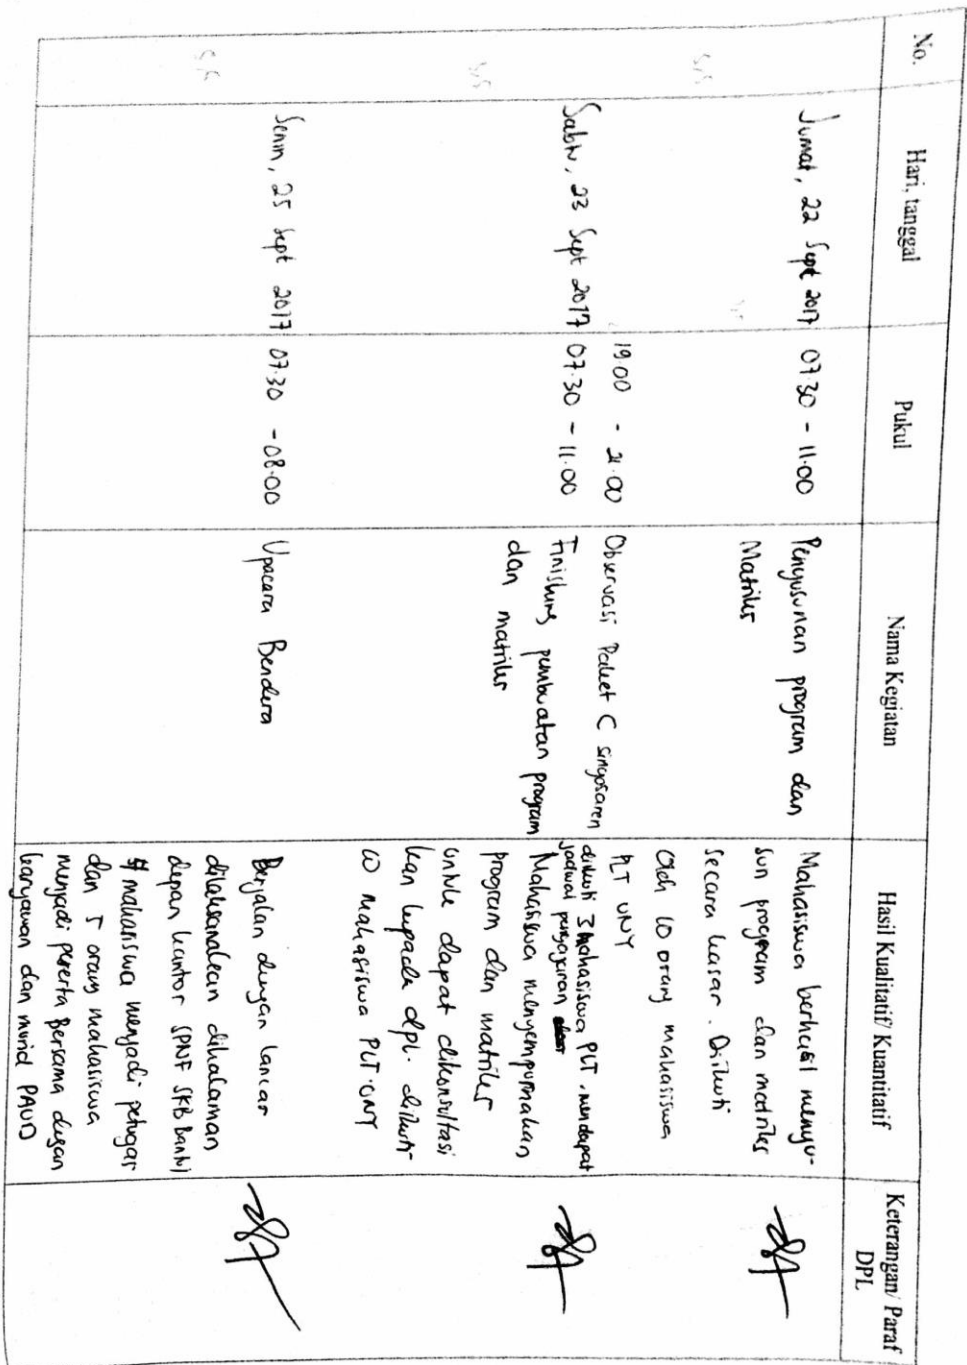 No. Hari, tanggal Pukul Nama Kegiatan Hasil Kualitatif/ Kuantitatif Keterangan/ Paraf DPL
Jumat, 22 Sept 2017 07.30 - 11.00 Penyusunan program dan Matriks
Mahasiswa berhasil menyu-
sun program dan matriks
secara kasar. Diikuti
Oleh 10 orang mahasiswa
PLT UNY
19.00 - 21.00 Observasi Paket C singosaren
diikuti 3 mahasiswa PLT. mendapat
jadwal pengajaran
Sabtu, 23 Sept 2017 07.30 - 11.00 Finishing pembuatan program
dan matriks
Mahasiswa menyempurnakan
program dan matriks
untuk dapat dikonsultasi
kan kepada dpl. diikuti
10 mahasiswa PLT UNY
Senin, 25 Sept 2017 07.30 - 08.00 Upacara Bendera
Berjalan dengan lancar
dilaksanakan dihalaman
depan kantor SPNF SKB Bantul
mahasiswa menjadi petugas
dan 5 orang mahasiswa
menjadi peserta Bersama dengan
karyawan dan murid PAUD